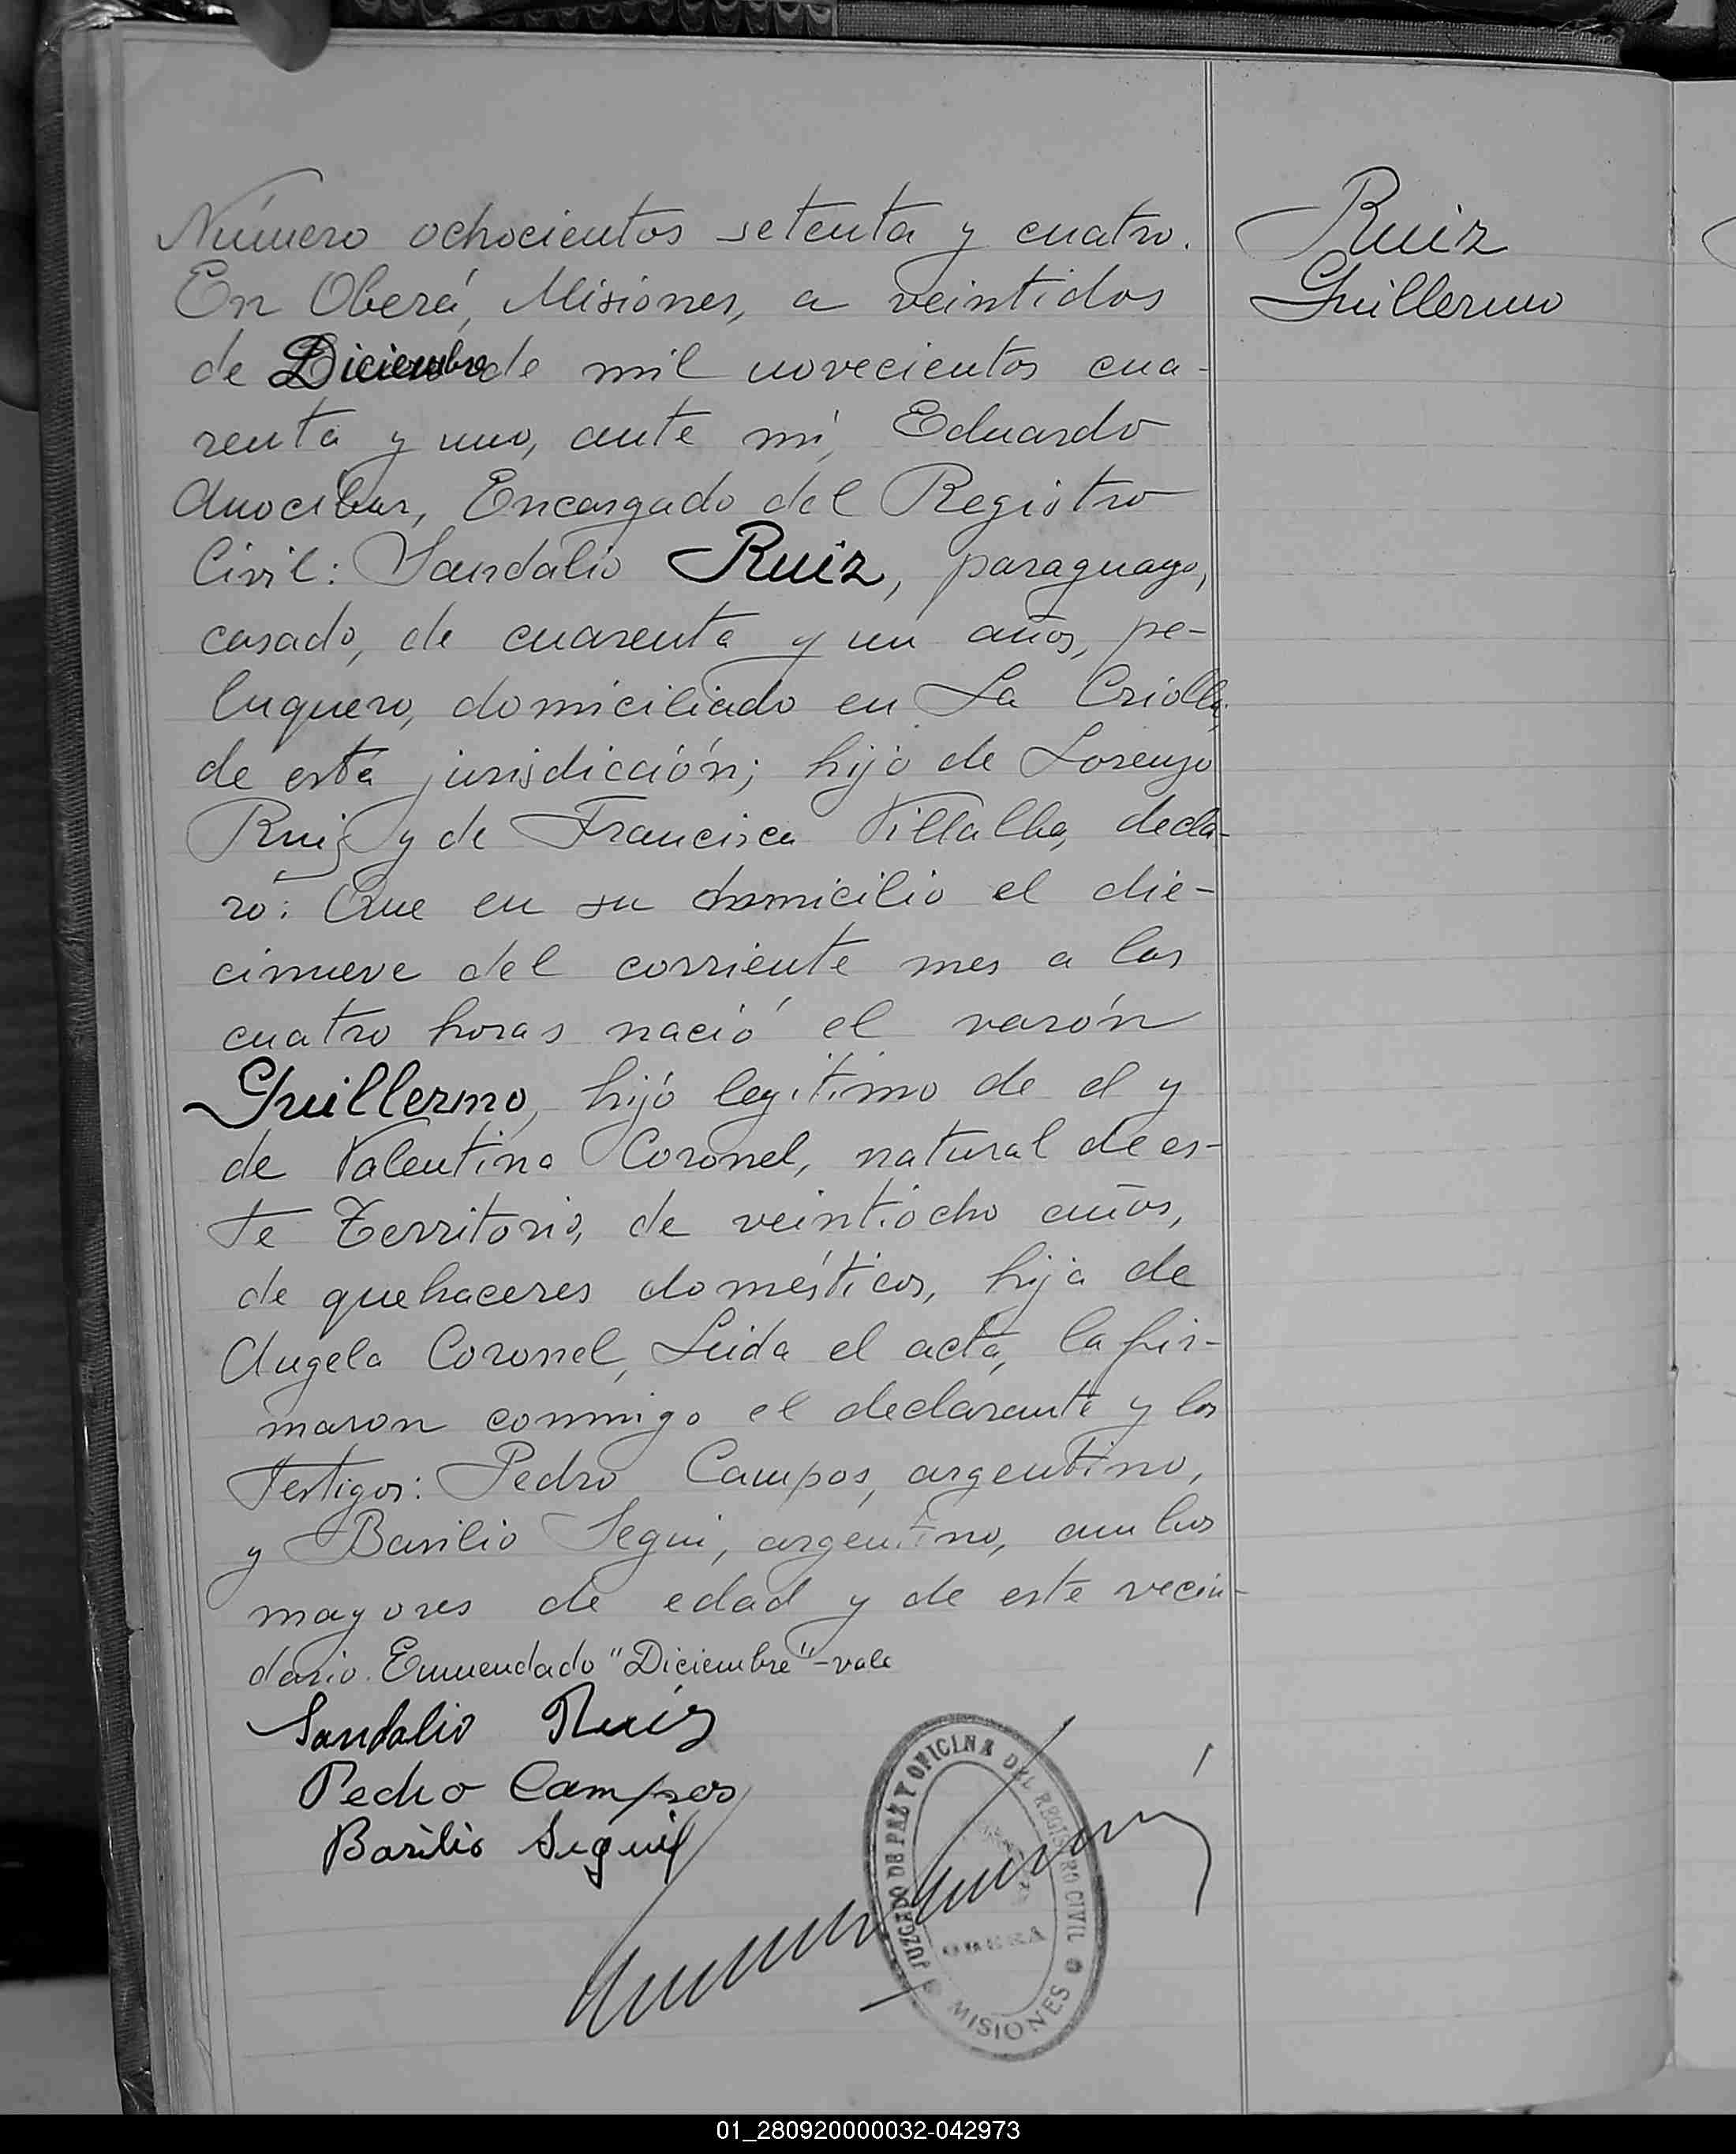 Número ochocientos setenta y cuatro.
En Oberá, Misiones, a veintidos
de Diciembre de mil novecientos cua-
renta y uno, ante mí, Eduardo
Anocibar, Encargado del Registro
Civil: Sandalio Ruiz, paraguayo,
casado, de cuarenta y un años, pe-
luquero, domiciliado en La Criolla,
de esta jurisdicción; hijo de Lorenzo
Ruiz y de Francisca Villalba, decla-
ró: Que en su domicilio el die-
cinueve del corriente mes a las
cuatro horas nació el varón
Guillermo, hijo legítimo de el y
de Valentina Coronel, natural de es-
te Territorio, de veintiocho años,
de quehaceres domésticos, hija de
Angela Coronel, Leida el acta, la fir-
maron conmigo el declarante y los
testigos: Pedro Campos, argentino,
y Basilio Segui, argentino, ambos
mayores de edad y de este vecin-
dario. Enmendado "Diciembre"-vale
Sandalio Ruiz
Pedro Campos
Basilio Segui
Ruiz
Guillermo
JUZGADO DE PAZ Y OFICINA DEL REGISTRO CIVIL
OBERÁ
MISIONES
01_280920000032-042973